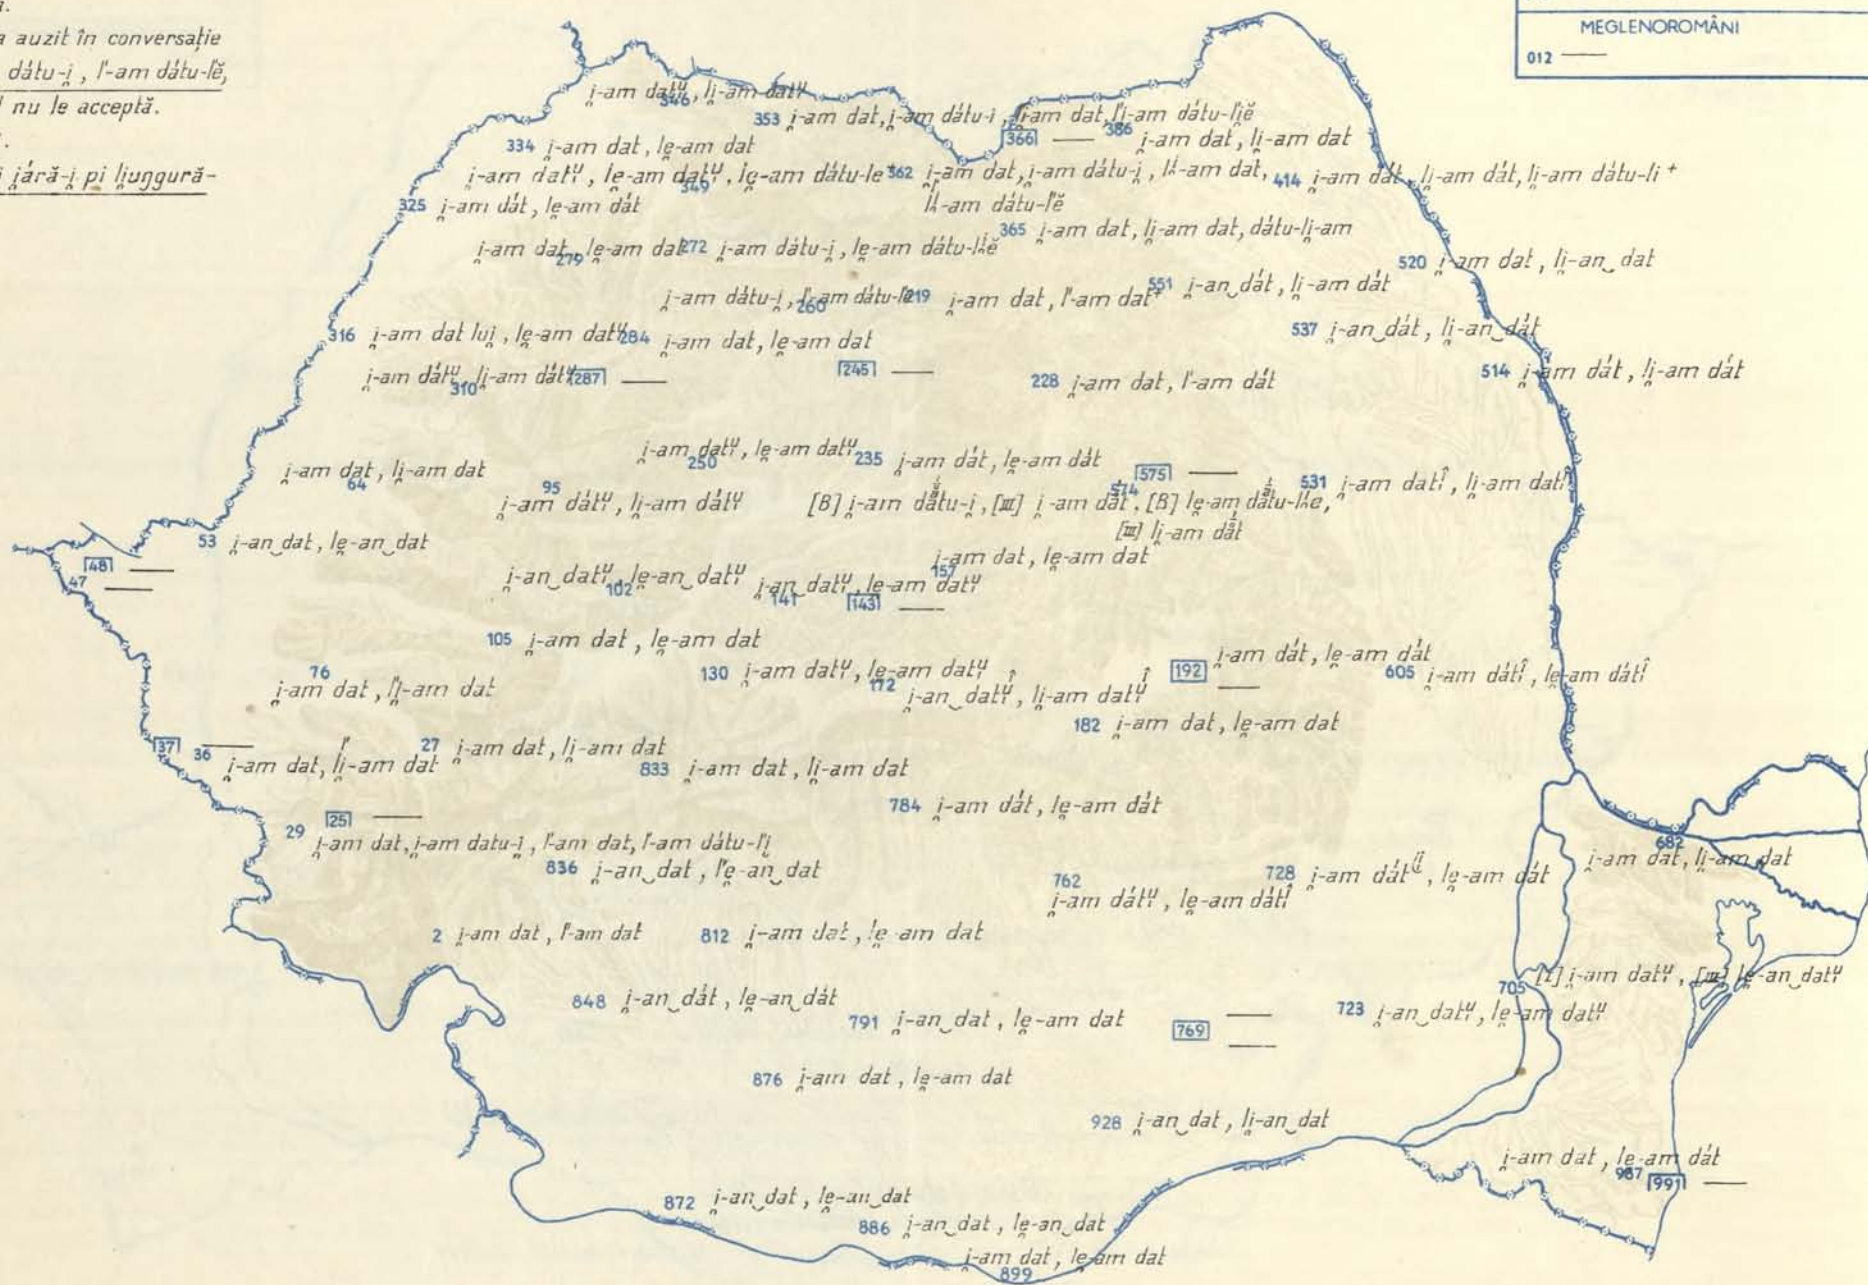 a auzit în conversație
dátu-i̯, l'-am dátu-l'ĕ,
nu le acceptă.
i̯áră-i̯ pi li̯uŋgură-
MEGLENOROMÂNI
012 ——
346 i̯-am datᶣ, li̯-am datᶣ
353 i̯-am dat, i̯-am dátu-i, l'i̯-am dat, l'i̯-am dátu-l'iĕ
366 ——
386 i̯-am dat, li̯-am dat
334 i̯-am dat, le̯-am dat
349 i̯-am datᶣ, le̯-am datᶣ, le̯-am dátu-le
362 i̯-am dat, i̯-am dátu-i̯, l'i̯-am dat,
l'i̯-am dátu-l'ĕ
414 i̯-am dát, li̯-am dát, li̯-am dátu-li +
325 i̯-am dát, le̯-am dát
365 i̯-am dat, li̯-am dat, dátu-li̯-am
279 i̯-am dat, le̯-am dat
272 i̯-am dátu-i̯, le̯-am dátu-l'ĕ
520 i̯-am dat, li̯-an‿dat
260 i̯-am dátu-i̯, l'-am dátu-l'e
219 i̯-am dat, l'-am dat+
551 i̯-an‿dát, li̯-am dát
537 i̯-an‿dát, li̯-an‿dát
316 i̯-am dat lui̯, le̯-am datᶣ
284 i̯-am dat, le̯-am dat
310 i̯-am dátᶣ, li̯-am dátᶣ
287 ——
245 ——
228 i̯-am dat, l'-am dát
514 i̯-am dát, li̯-am dát
64 i̯-am dat, li̯-am dat
250 i̯-am datᶣ, le̯-am datᶣ
235 i̯-am dát, le̯-am dát
575 ——
531 i̯-am datî, li̯-am datî
95 i̯-am dátᶣ, li̯-am dátᶣ
574 [B] i̯-am dátu-i̯, [III] i̯-am dát, [B] le̯-am dátu-l'e,
[III] li̯-am dát
53 i̯-an‿dat, le̯-an‿dat
48 ——
47 ——
157 i̯-am dat, le̯-am dat
102 i̯-an‿datᶣ, le̯-an‿datᶣ
141 i̯-an‿datᶣ, le̯-am datᶣ
143 ——
105 i̯-am dat, le̯-am dat
76 i̯-am dat, l'i̯-am dat
130 i̯-am datᶣ, le̯-am datᶣ
172 i̯-an‿datᶣ, li̯-am datᶣ
192 ——
i̯-am dát, le̯-am dát
605 i̯-am dátî, le̯-am dátî
182 i̯-am dat, le̯-am dat
37 ——
36 i̯-am dat, li̯-am dat
27 i̯-am dat, li̯-am dat
833 i̯-am dat, li̯-am dat
784 i̯-am dát, le̯-am dát
25 ——
29 i̯-am dat, i̯-am datu-i̯, l'-am dat, l'-am dátu-l'i̯
836 i̯-an‿dat, l'e̯-an‿dat
762 i̯-am dátᶣ, le̯-am dátî
728 i̯-am dát, le̯-am dát
682 i̯-am dat, li̯-am dat
2 i̯-am dat, l'-am dat
812 i̯-am dat, le̯-am dat
705 [I] i̯-am datᶣ, [III] le̯-an‿datᶣ
848 i̯-an‿dát, le̯-an‿dát
791 i̯-an‿dat, le̯-am dat
769 ——
723 i̯-an‿datᶣ, le̯-am datᶣ
876 i̯-am dat, le̯-am dat
928 i̯-an‿dat, li̯-an‿dat
987 i̯-am dat, le̯-am dát
991 ——
872 i̯-an‿dat, le̯-an‿dat
886 i̯-an‿dat, le̯-an‿dat
899 i̯-am dat, le̯-am dat